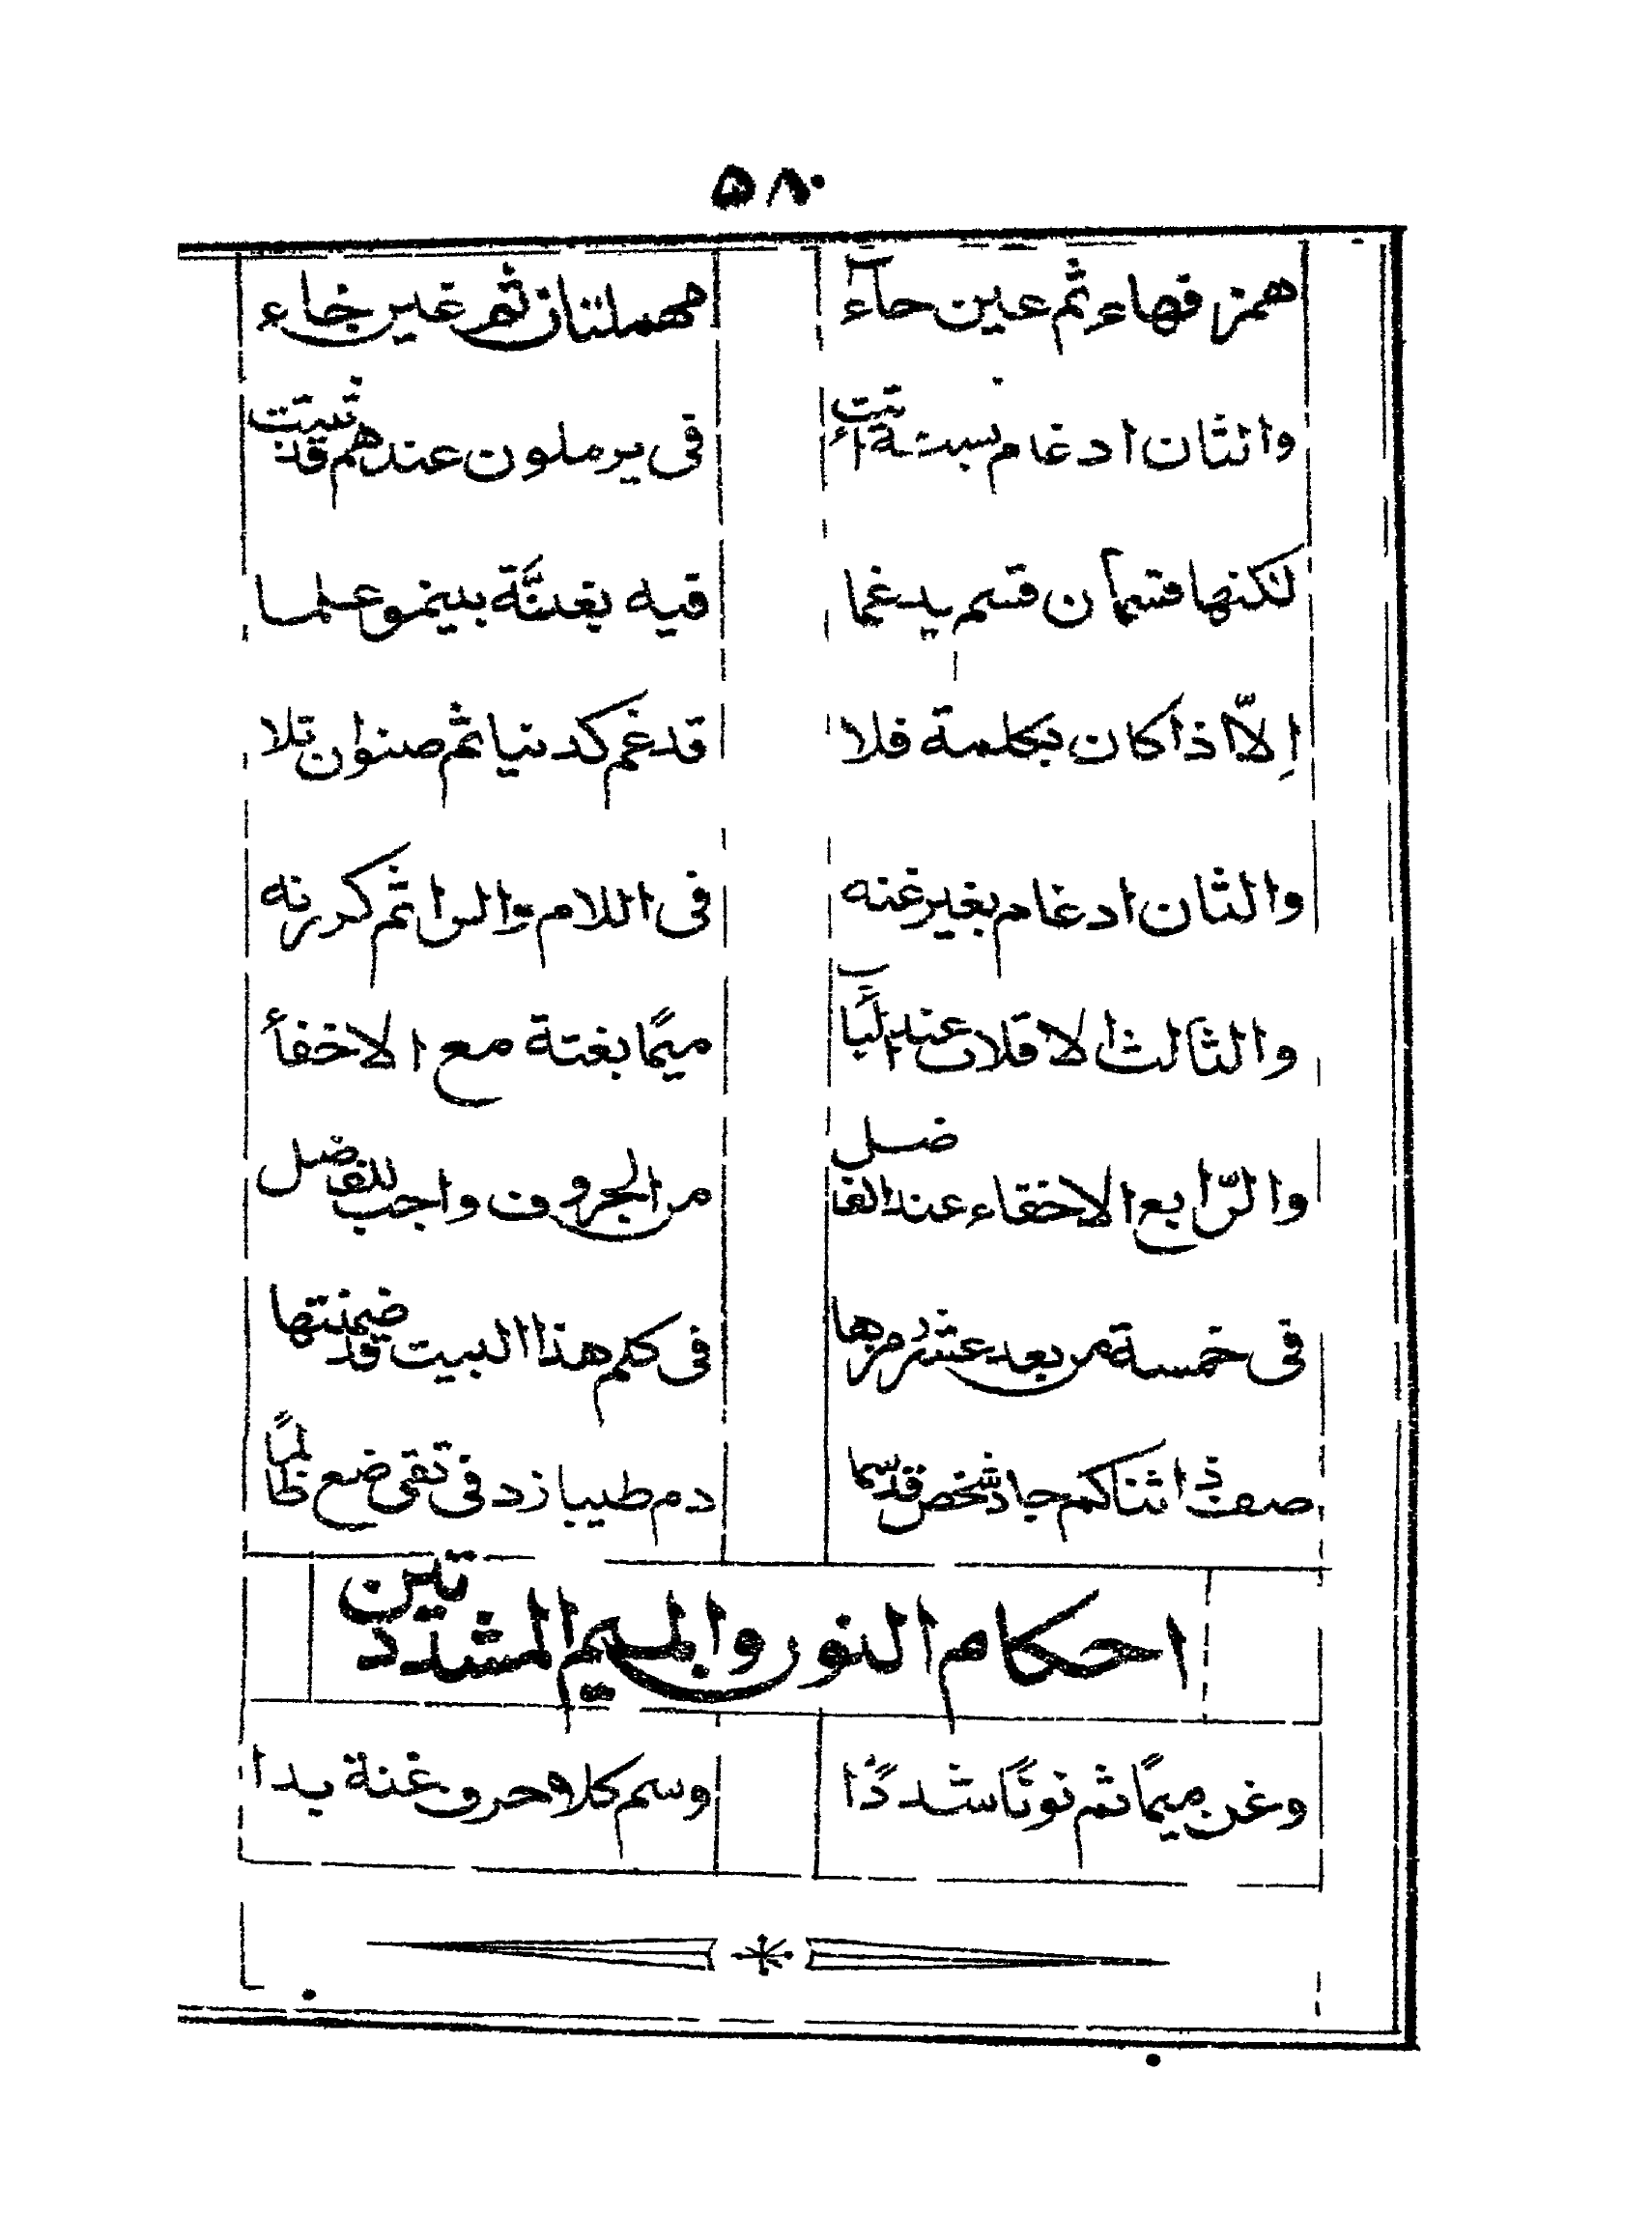 ٥٨٠
همز فهاء ثم عين حاء مهملتان ثم غين خاء
والثان ادغام بستة اتت فى يرملون عندهم قد ثبتت
لكنها قسمان قسم يدغما فيه بغنة بينمو علما
اِلاّ اذا كان بكلمة فلا تدغم كدنيا ثم صنوان تلا
والثان ادغام بغير غنه فى اللام والرا ثم كررنه
والثالث الاقلاب عند البا ميمًا بغنة مع الاخفأ
والرّابع الاخفاء عند الفاضل من الحروف واجب للفاضل
فى خمسة من بعد عشر رمزها فى كلم هذا البيت قد ضمنتها
صف ذا ثنا كم جاد شخص قد سّما دم طيبا زد فى تقى ضع ظالمًا
احكام النون والميم المشددتين
وغن ميمًا ثم نونًا شددًا وسم كلا حرف غنة بدا